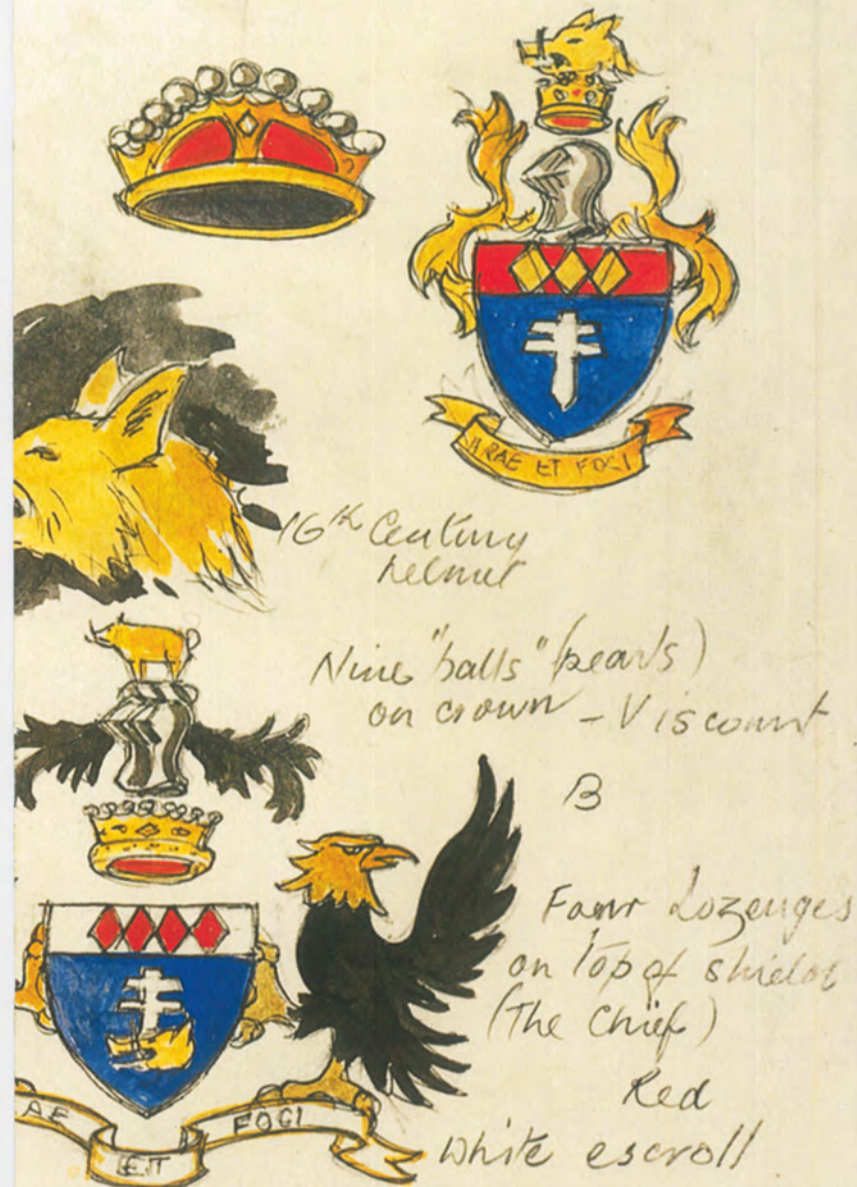 ARAE ET FOCI
16th Century
helmet
Nine "balls" (pearls)
on crown - Viscount
B
Four Lozenges
on top of shield
(The Chief)
Red
AE ET FOCI
White escroll